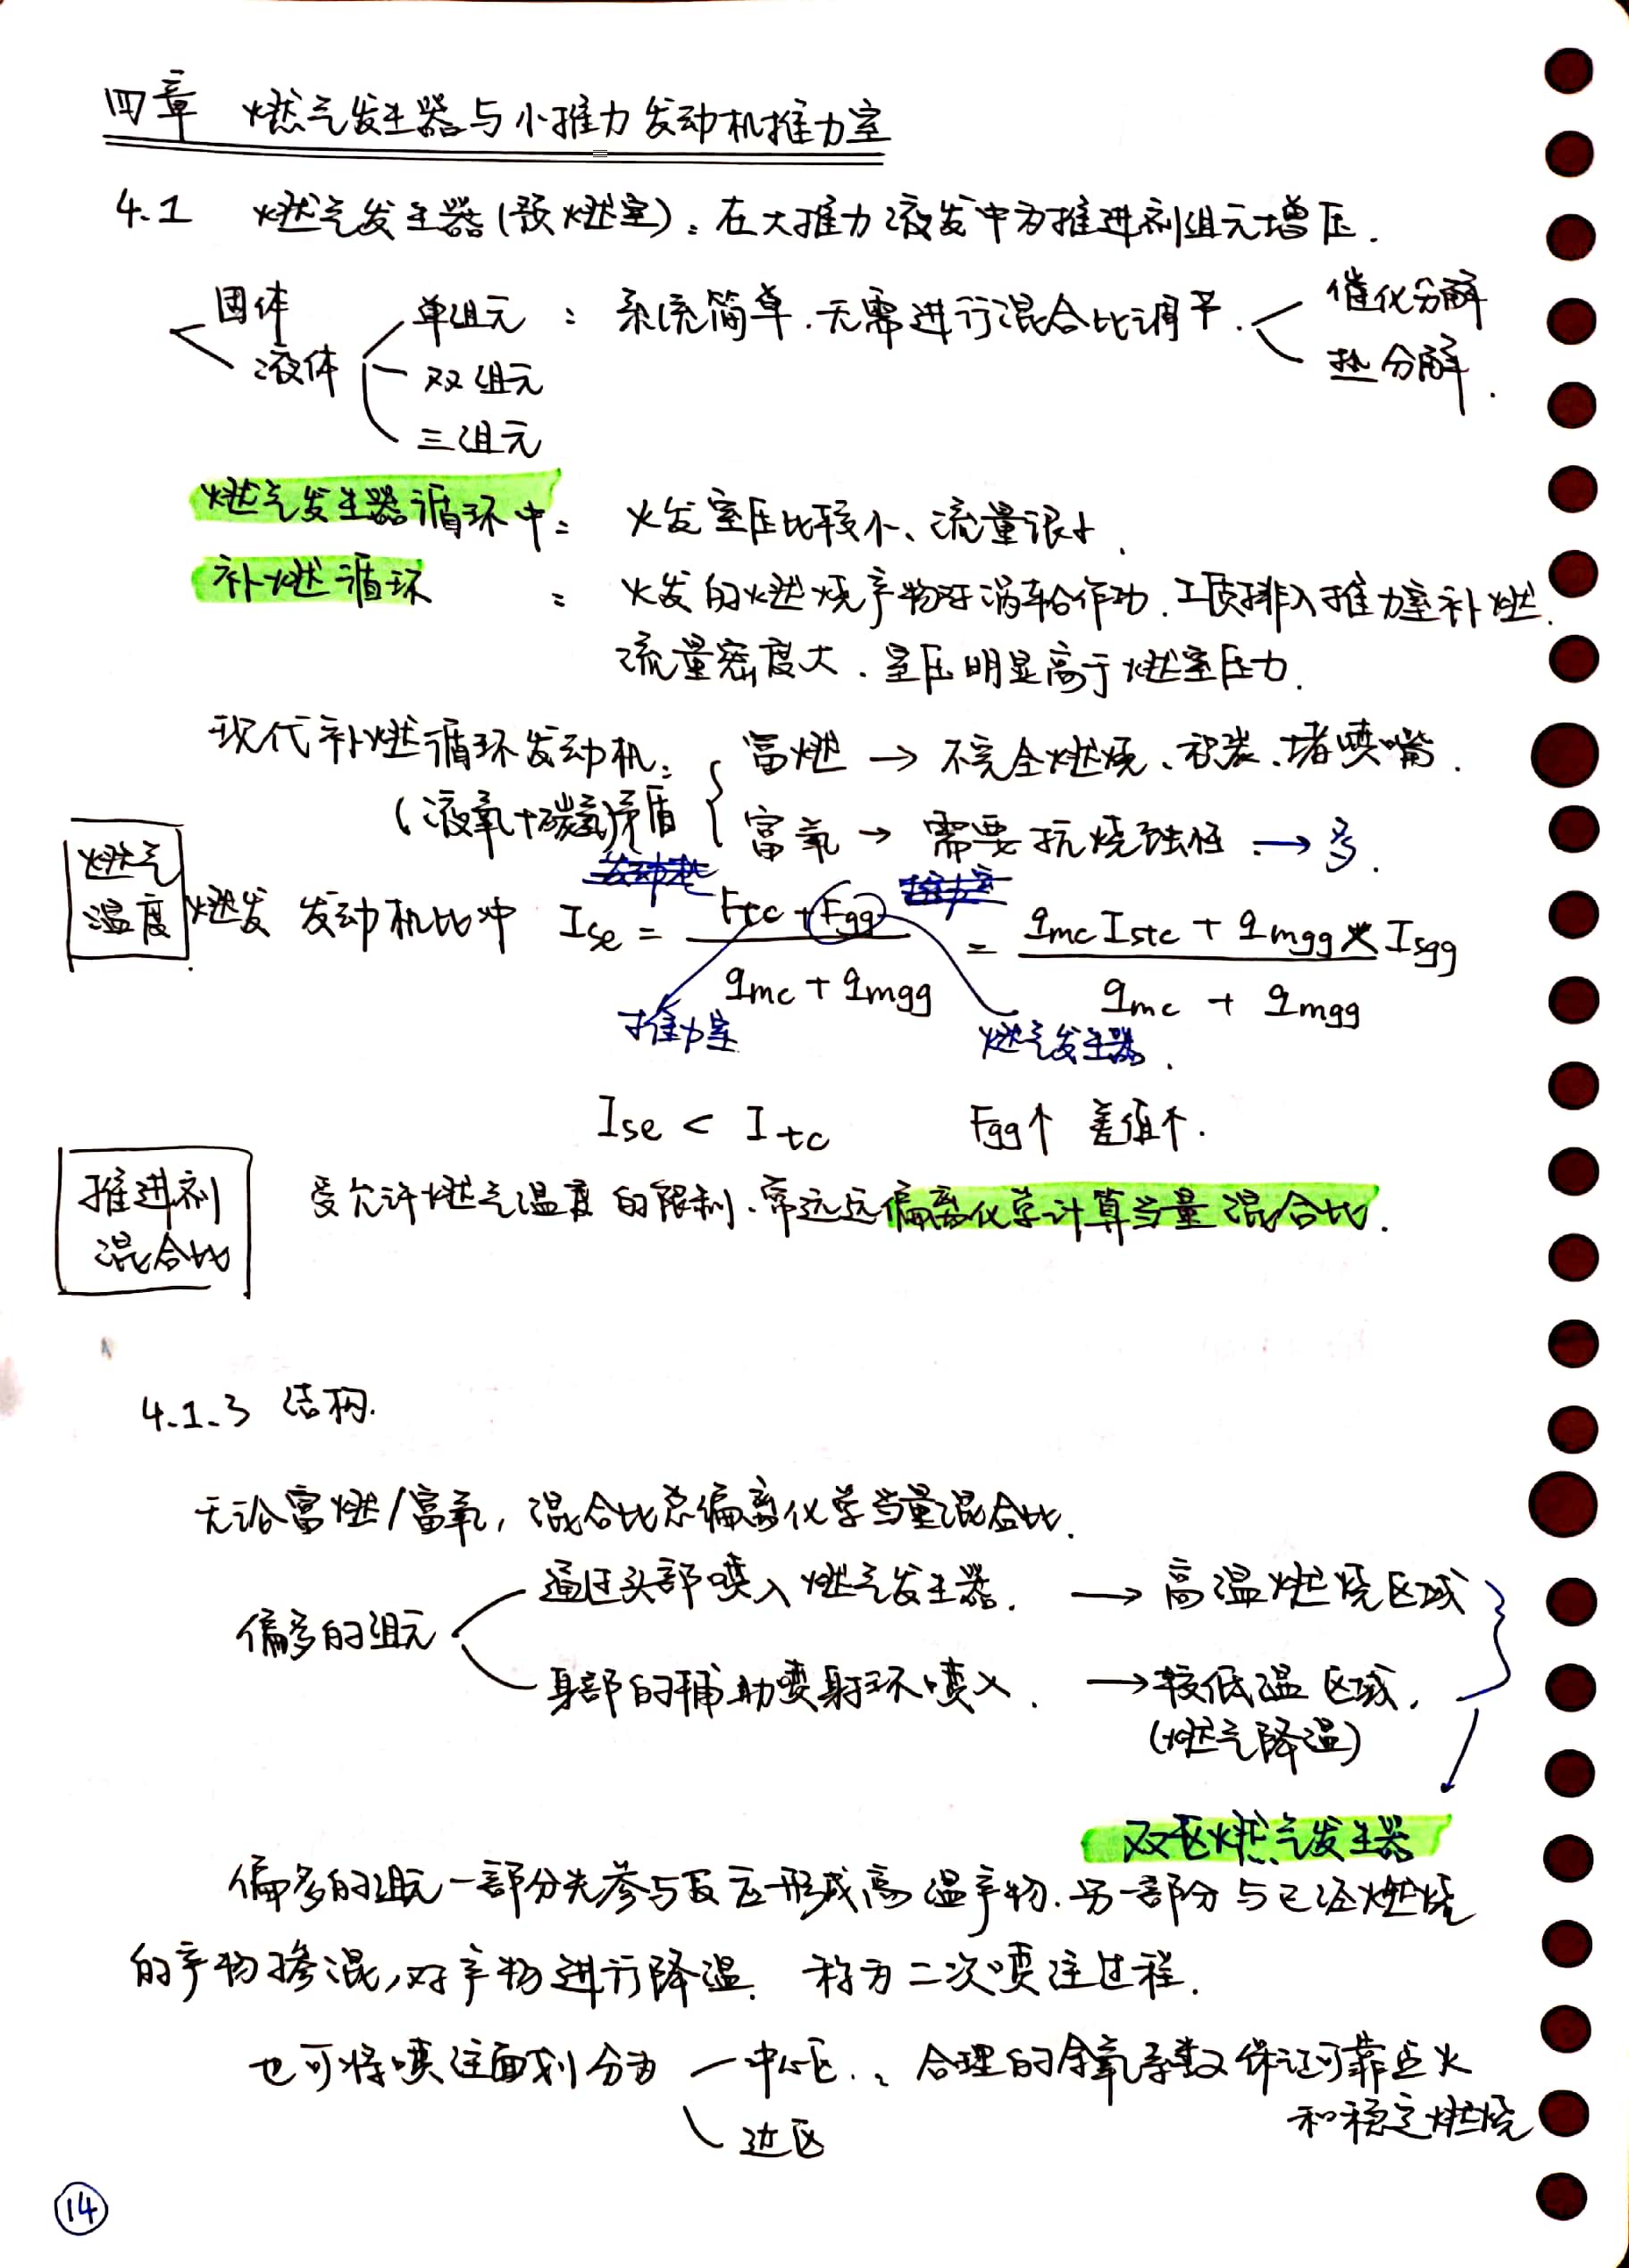 四章 燃气发生器与小推力发动机推力室
4.1 燃气发生器(预燃室): 在大推力液发中为推进剂组元增压.
固体
液体
单组元 : 系统简单. 无需进行混合比调节.
双组元
三组元
催化分解
热分解.
燃气发生器循环中: 火发室压比较小、流量很小.
补燃循环 : 火发的燃烧产物对涡轮作功. 工质排入推力室补燃.
流量密度大. 室压明显高于燃室压力.
现代补燃循环发动机: 富燃 → 不完全燃烧、积炭、堵喷嘴.
(液氧+碳氢)矛盾 富氧 → 需要抗烧蚀性. → 多.
燃气
温度
燃发 发动机比冲 Ise = (Ftc + Fgg) / (qmc + qmgg) = (qmc Istc + qmgg * Isgg) / (qmc + qmgg)
推力室 燃气发生器.
Ise < Itc Fgg↑ 差值↑.
推进剂
混合比
受允许燃气温度的限制. 常远远偏离化学计算当量混合比.
4.1.3 结构.
无论富燃/富氧, 混合比总偏离化学当量混合比.
偏多的组元
通过头部喷入燃气发生器. → 高温燃烧区域
身部的辅助喷射环喷入. → 较低温区域.
(燃气降温)
双区燃气发生器
偏多的组元一部分先参与反应形成高温产物. 另一部分与已经燃烧
的产物掺混, 对产物进行降温. 称为二次喷注过程.
也可将喷注面划分为 中心区.. 合理的余氧系数保证可靠点火
和稳定燃烧
边区
14